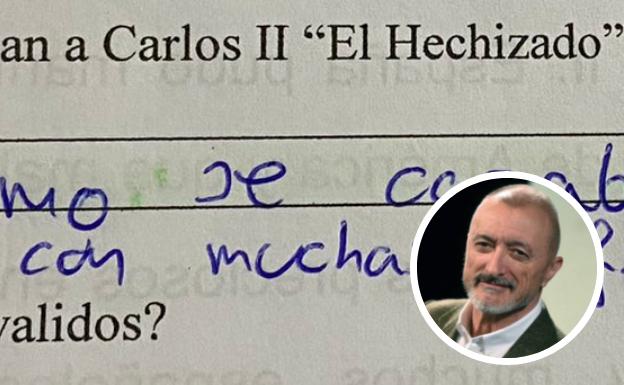 an a Carlos II “El Hechizado”
mo se
con mucha
validos?